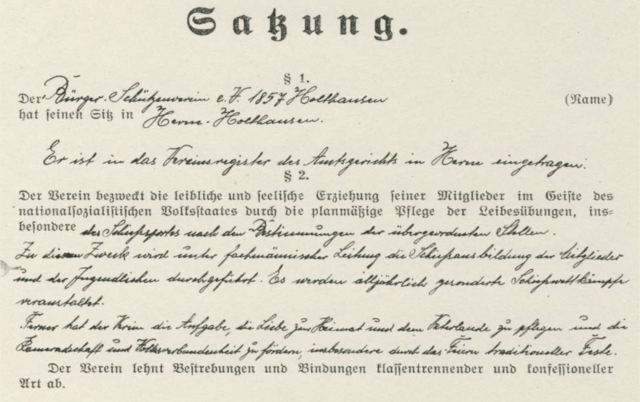 Satzung.
§ 1.
Der Bürger-Schützenverein e. V. 1857 Holthausen (Name)
hat seinen Sitz in Herne-Holthausen.
Er ist in das Vereinsregister des Amtsgerichts in Herne eingetragen.
§ 2.
Der Verein bezweckt die leibliche und seelische Erziehung seiner Mitglieder im Geiste des
nationalsozialistischen Volksstaates durch die planmäßige Pflege der Leibesübungen, ins-
besondere des Schießsportes nach den Bestimmungen der übergeordneten Stellen.
Zu diesem Zweck wird unter fachmännischer Leitung die Schießausbildung der Mitglieder
und der Jugendlichen durchgeführt. Es werden alljährlich gesonderte Schießwettkämpfe
veranstaltet.
Ferner hat der Verein die Aufgabe, die Liebe zur Heimat und dem Vaterlande zu pflegen und die
Kameradschaft und Volksverbundenheit zu fördern, insbesondere durch das Feiern traditioneller Feste.
Der Verein lehnt Bestrebungen und Bindungen klassentrennender und konfessioneller
Art ab.